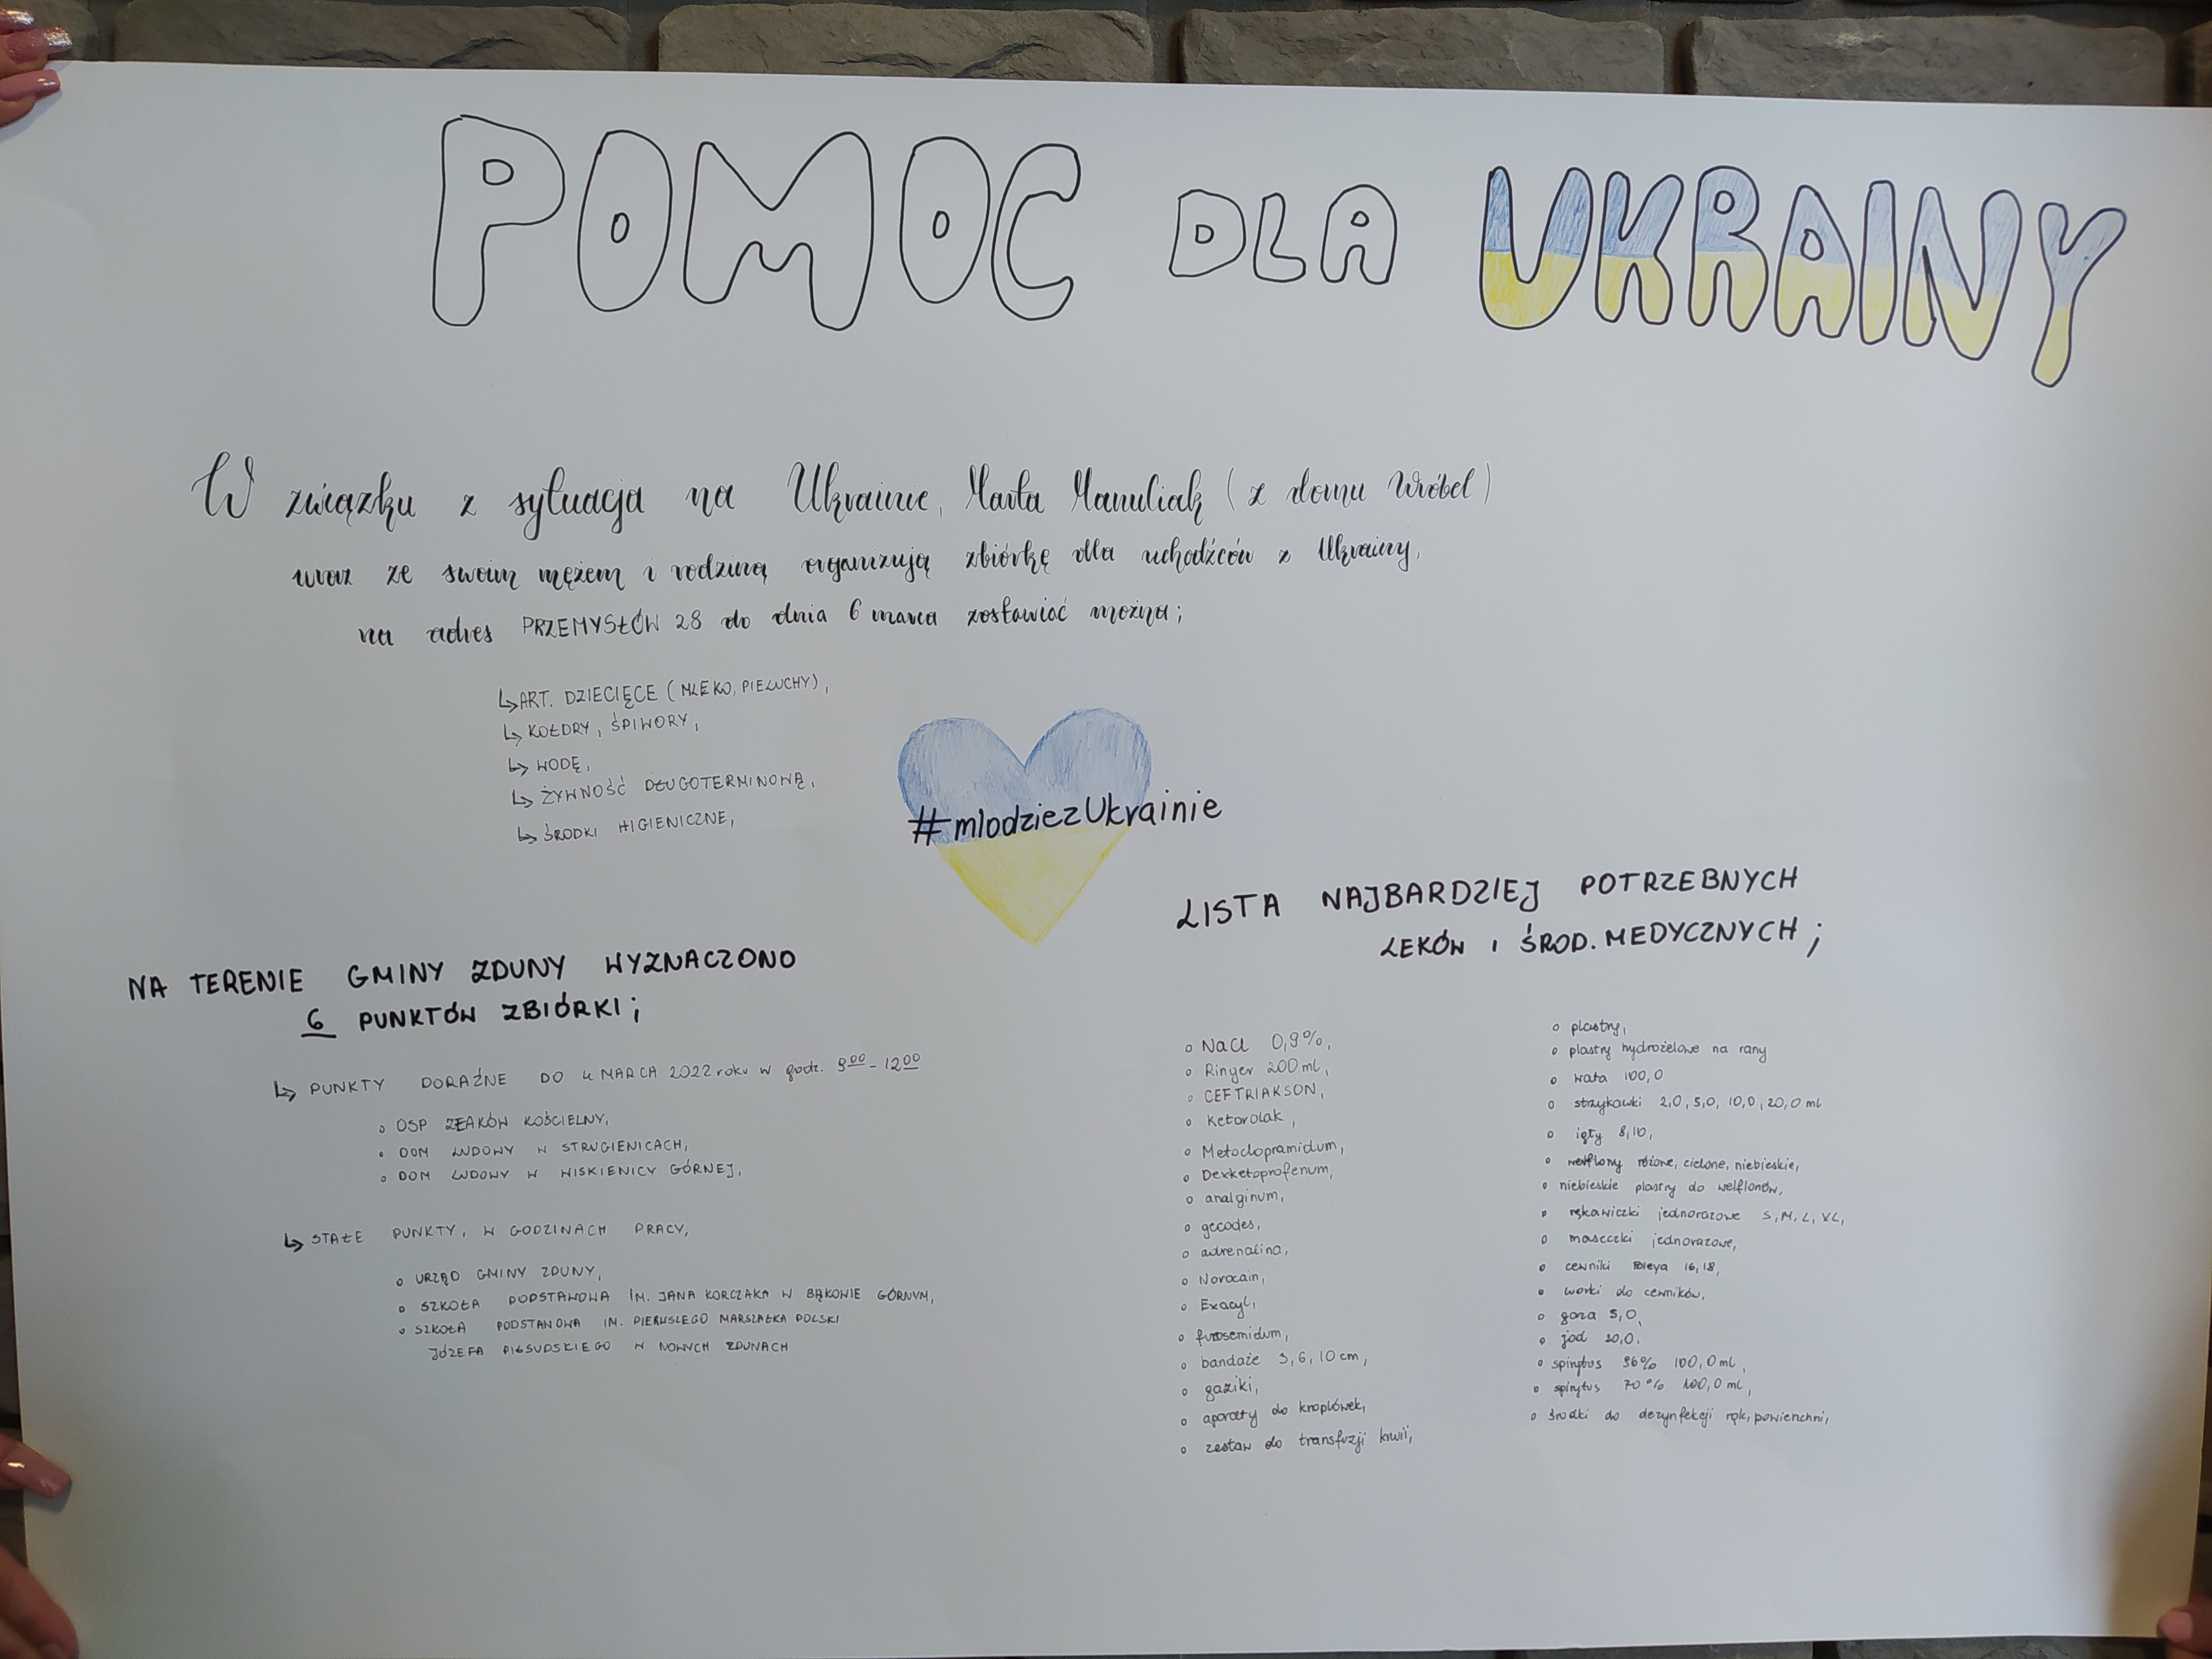 POMOC DLA UKRAINY
W związku z sytuacja na Ukrainie, Marta Manuliak (z domu Wróbel)
wraz ze swoim mężem i rodziną organizują zbiórkę dla uchodźców z Ukrainy,
na adres PRZEMYSŁÓW 28 do dnia 6 marca zostawiać można;
↳ ART. DZIECIĘCE (MLEKO, PIELUCHY),
↳ KOŁDRY, ŚPIWORY,
↳ WODĘ,
↳ ŻYWNOŚĆ DŁUGOTERMINOWĄ,
↳ ŚRODKI HIGIENICZNE,
#mlodziezUkrainie
NA TERENIE GMINY ZDUNY WYZNACZONO
6 PUNKTÓW ZBIÓRKI;
↳ PUNKTY DORAŹNE DO 4 MARCA 2022 roku w godz. 9⁰⁰ - 12⁰⁰
o OSP ZŁAKÓW KOŚCIELNY,
o DOM LUDOWY W STRUGIENICACH,
o DOM LUDOWY W WISKIENICY GÓRNEJ,
↳ STAŁE PUNKTY, W GODZINACH PRACY,
o URZĄD GMINY ZDUNY,
o SZKOŁA PODSTAWOWA IM. JANA KORCZAKA W BĄKOWIE GÓRNYM,
o SZKOŁA PODSTAWOWA IM. PIERWSZEGO MARSZAŁKA POLSKI
JÓZEFA PIŁSUDSKIEGO W NOWYCH ZDUNACH
LISTA NAJBARDZIEJ POTRZEBNYCH
LEKÓW I ŚROD. MEDYCZNYCH;
o NaCl 0,9%,
o Ringer 200 ml,
o CEFTRIAKSON,
o Ketorolak,
o Metoclopramidum,
o Dexketoprofenum,
o analginum,
o gecodes,
o adrenalina,
o Novocain,
o Exacyl,
o furosemidum,
o bandaże 5, 6, 10 cm,
o gaziki,
o aparaty do kroplówek,
o zestaw do transfuzji krwii,
o plastry,
o plastry hydrożelowe na rany
o wata 100,0
o strzykawki 2,0, 5,0, 10,0, 20,0 ml
o igły 8, 10,
o welflony różowe, zielone, niebieskie,
o niebieskie plastry do welflonów,
o rękawiczki jednorazowe S, M, L, XL,
o maseczki jednorazowe,
o cewniki Foleya 16, 18,
o worki do cewników,
o gaza 5,0,
o jod 20,0,
o spirytus 96% 100,0 ml,
o spirytus 70% 100,0 ml,
o środki do dezynfekcji rąk, powierzchni,